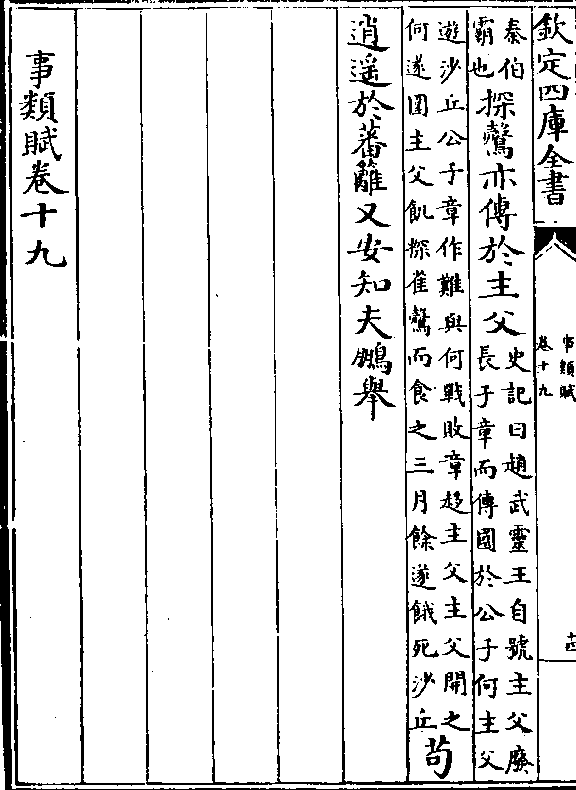 欽定四庫全書
事類賦
卷十九
十四
秦伯
霸也
探鷇亦傳於主父
史記曰趙武靈王自號主父廢
長子章而傳國於公子何主父
遊沙丘公子章作難與何戰敗章趍主父主父開之
何遂圍主父飢探雀鷇而食之三月餘遂餓死沙丘
苟
逍遥於蕃籬又安知夫鵬舉
事類賦卷十九